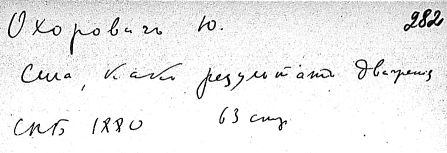 Охоровичъ Ю. 282
Сила, какъ результатъ движения
СПБ 1880 63 стр